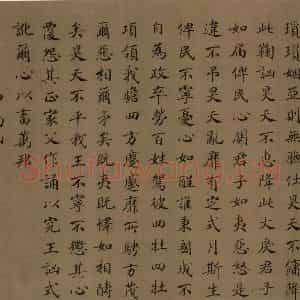 瑣瑣姻亞則無膴仕昊天不傭降
此鞠訩昊天不惠降此大戾君子
如屆俾民心闋君子如夷惡怒是
違不弔昊天亂靡有定式月斯生
俾民不寧憂心如酲誰秉國成不
自為政卒勞百姓駕彼四牡四牡
項領我瞻四方蹙蹙靡所騁方茂
爾惡相爾矛矣既夷既懌如相醻
矣昊天不平我王不寧不懲其心
覆怨其正家父作誦以究王訩式
訛爾心以畜萬邦